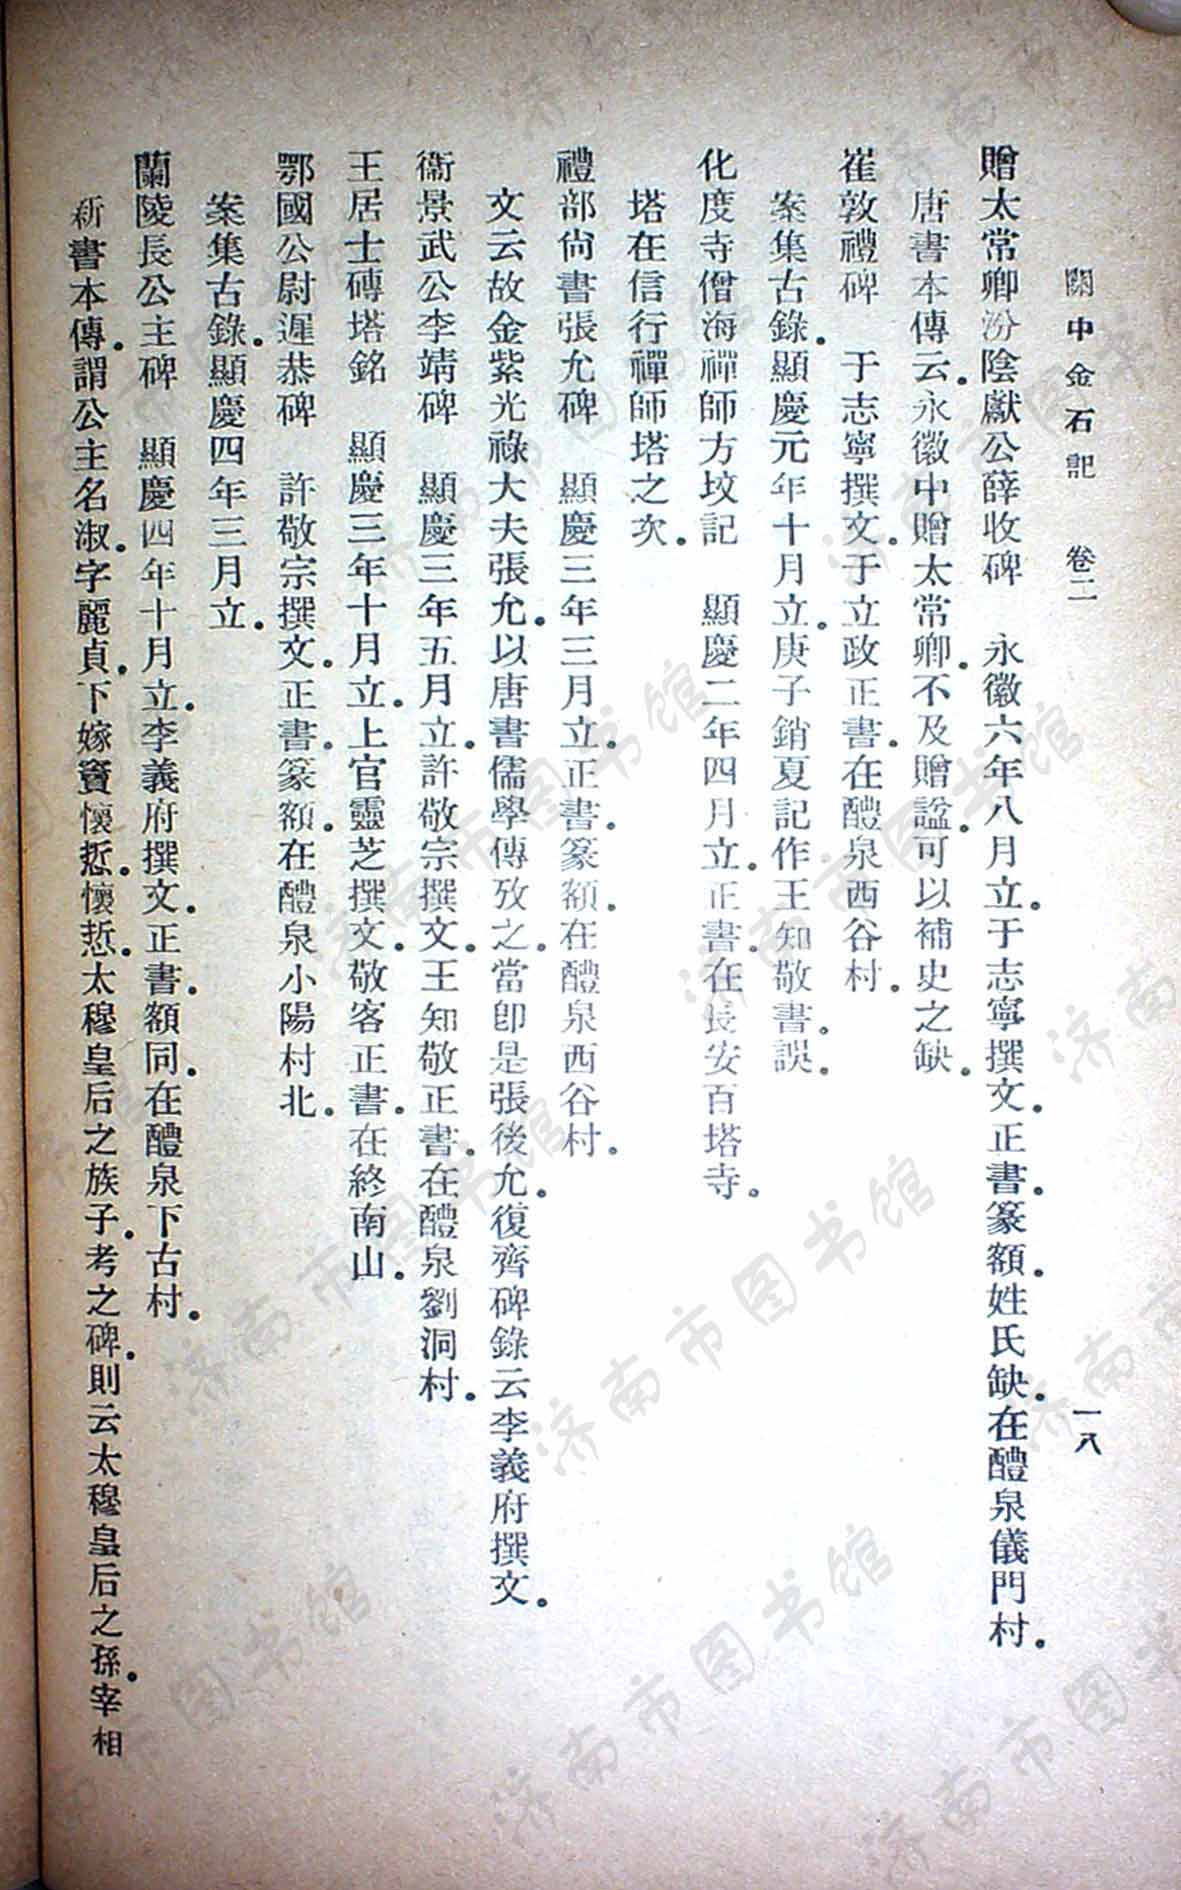 關中金石記　卷二　一八
贈太常卿汾陰獻公薛收碑　永徽六年八月立。于志寧撰文。正書。篆額。姓氏缺。在醴泉儀門村。
唐書本傳云。永徽中贈太常卿。不及贈諡。可以補史之缺。
崔敦禮碑　于志寧撰文。于立政正書。在醴泉西谷村。
案集古錄。顯慶元年十月立。庚子銷夏記作王知敬書。誤。
化度寺僧海禪師方坟記　顯慶二年四月立。正書。在長安百塔寺。
塔在信行禪師塔之次。
禮部尙書張允碑　顯慶三年三月立。正書。篆額。在醴泉西谷村。
文云故金紫光祿大夫張允。以唐書儒學傳攷之。當卽是張後允。復齊碑錄云李義府撰文。
衞景武公李靖碑　顯慶三年五月立。許敬宗撰文。王知敬正書。在醴泉劉洞村。
王居士磚塔銘　顯慶三年十月立。上官靈芝撰文。敬客正書。在終南山。
鄂國公尉遲恭碑　許敬宗撰文。正書。篆額。在醴泉小陽村北。
案集古錄。顯慶四年三月立。
蘭陵長公主碑　顯慶四年十月立。李義府撰文。正書。額同。在醴泉下古村。
新書本傳。謂公主名淑。字麗貞。下嫁竇懷悊。懷悊。太穆皇后之族子。考之碑。則云太穆皇后之孫。宰相
濟南市图书馆